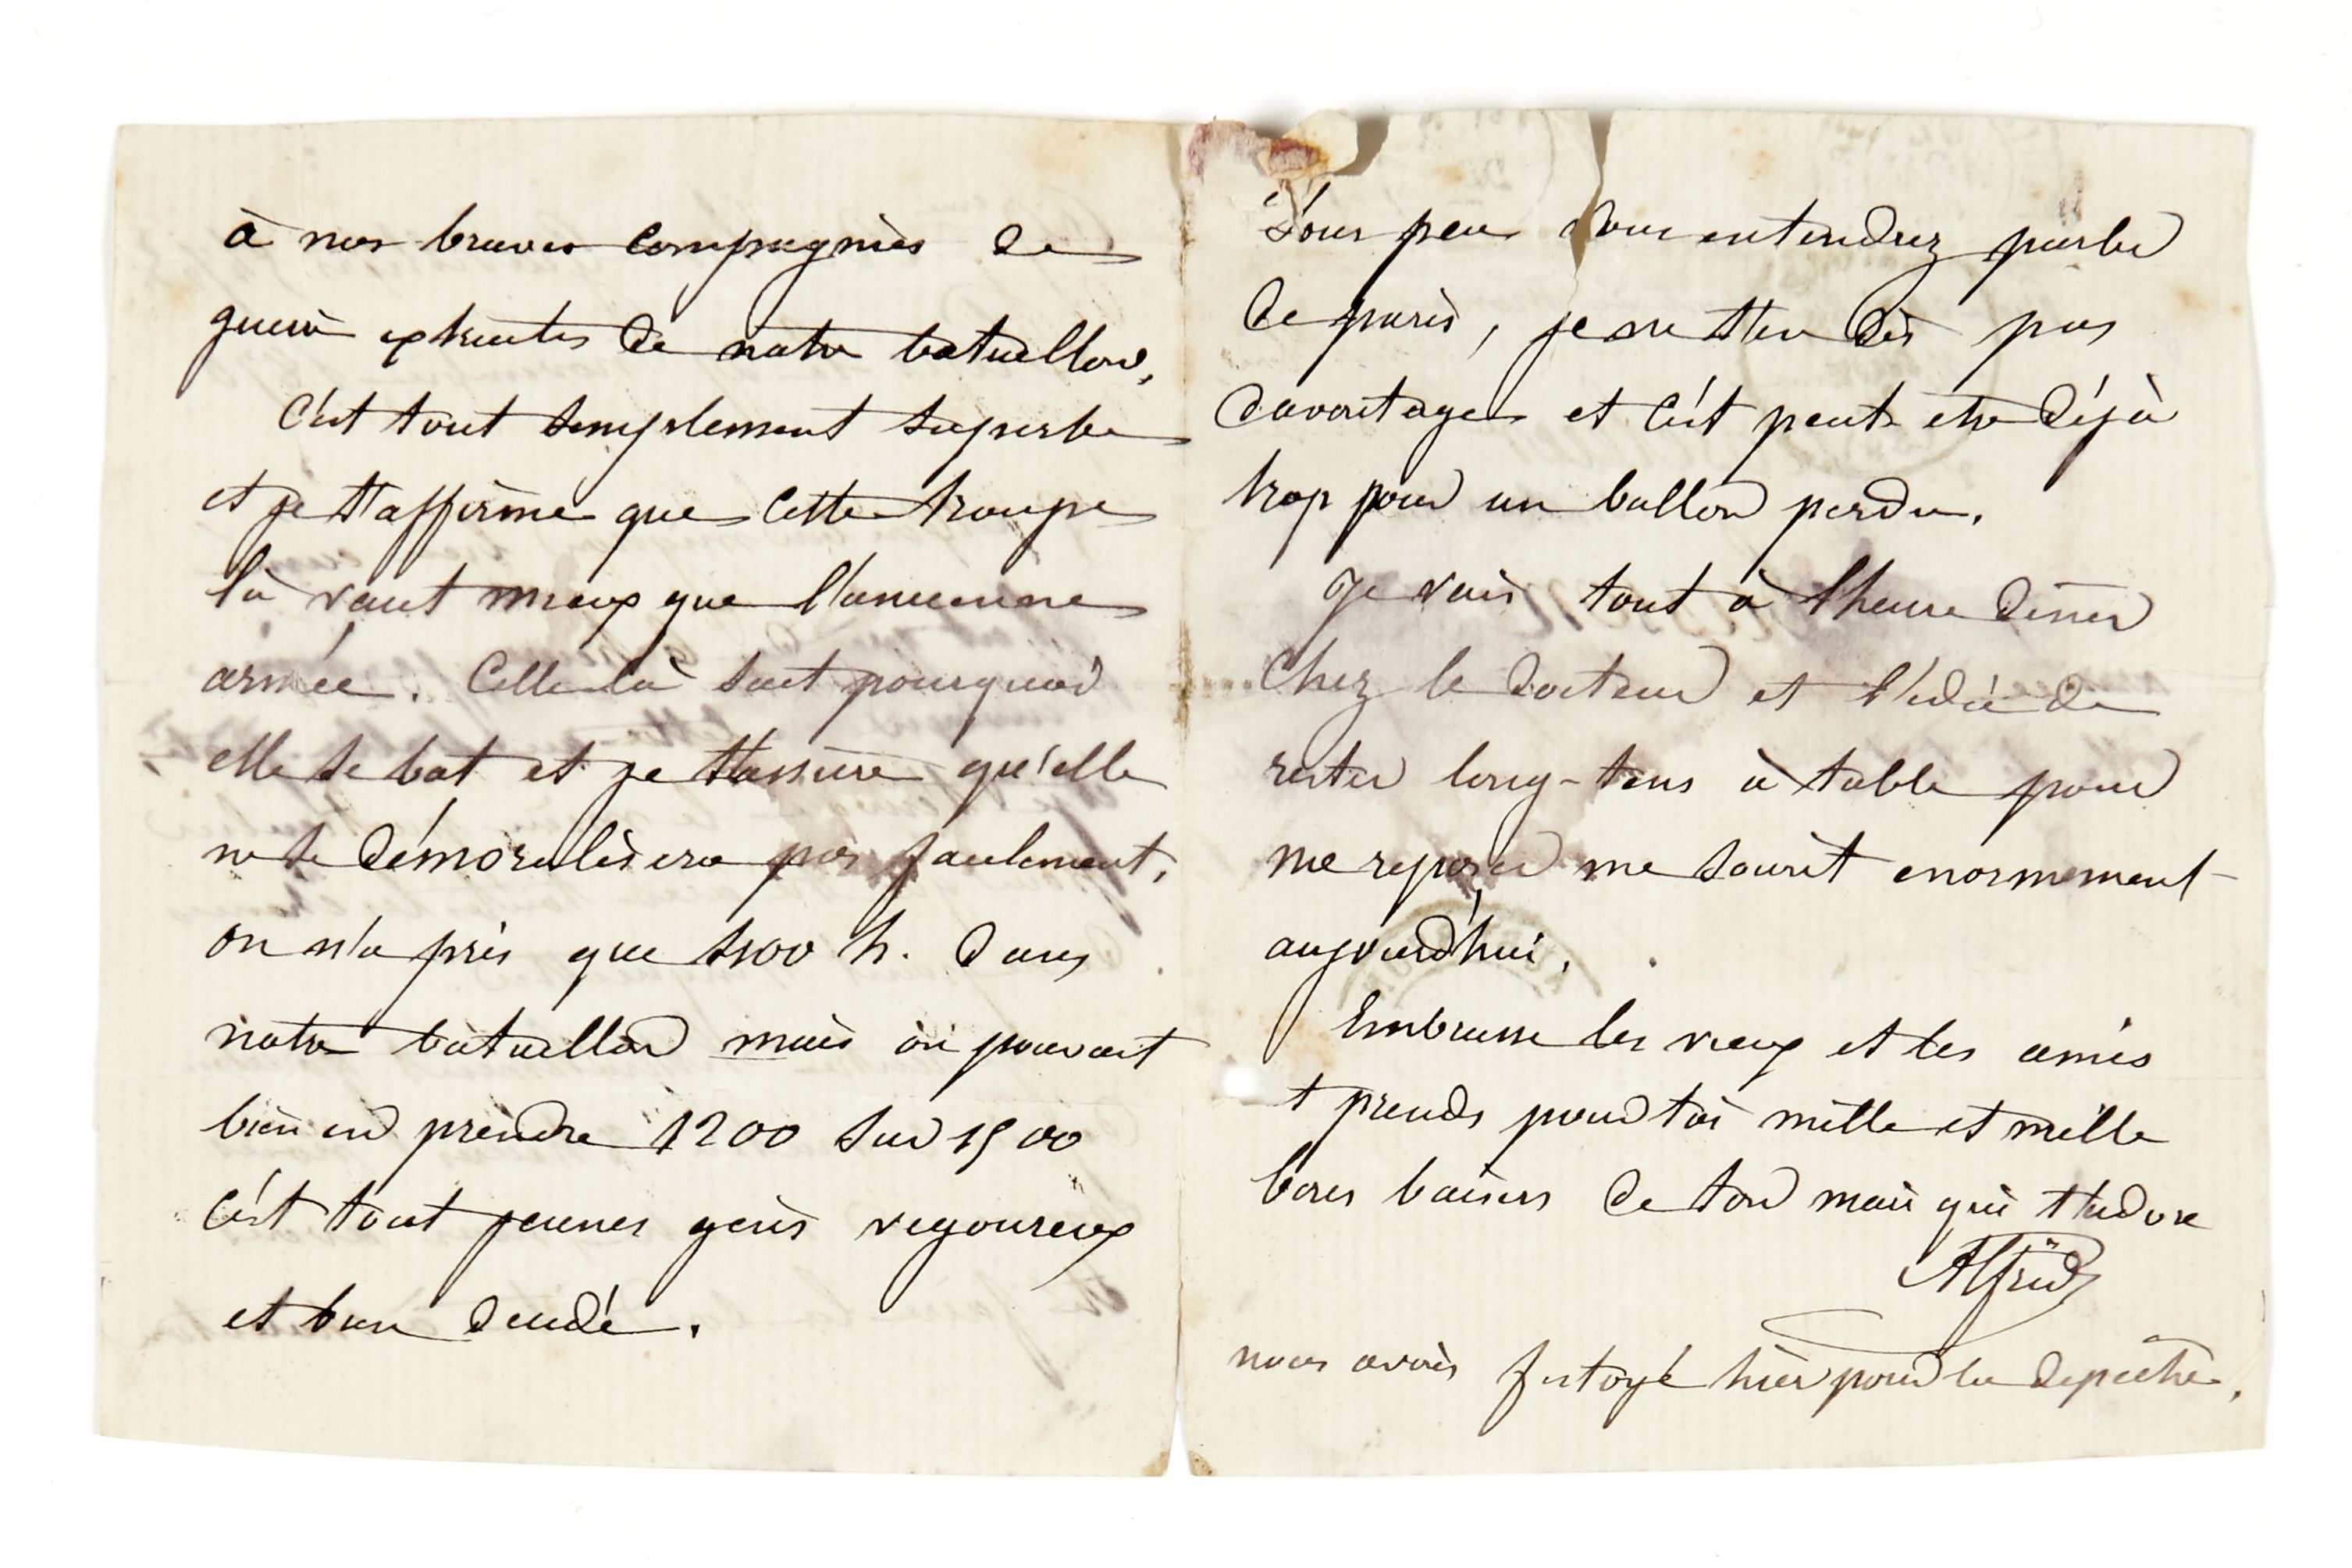 à nos braves compagnies de
guerre extraites de notre bataillon,
C'est tout simplement superbe
et je t'affirme que cette troupe
là vaut mieux que l'ancienne
armée. Celle là sait pourquoi
elle se bat et je t'assure qu'elle
ne se démoralisera pas facilement,
on n'a pris que 500 h. dans
notre bataillon mais on pouvait
bien en prendre 1200 sur 1500
c'est tout jeunes gens vigoureux
et bien décidé.
Sous peu vous entendrez parler
de paris, je ne t'en dis pas
davantage et c'est peut etre déjà
trop pour un ballon perdu.
Je vais tout à l'heure diner
chez le docteur et l'idée de
rester long-tems à table pour
me reposer me sourit enormement
aujourd'hui.
Embrasse les vieux et les amis
et prends pour toi mille et mille
bons baisers de ton mari qui t'adore
Alfred
nous avons festoyé hier pour la depeche.